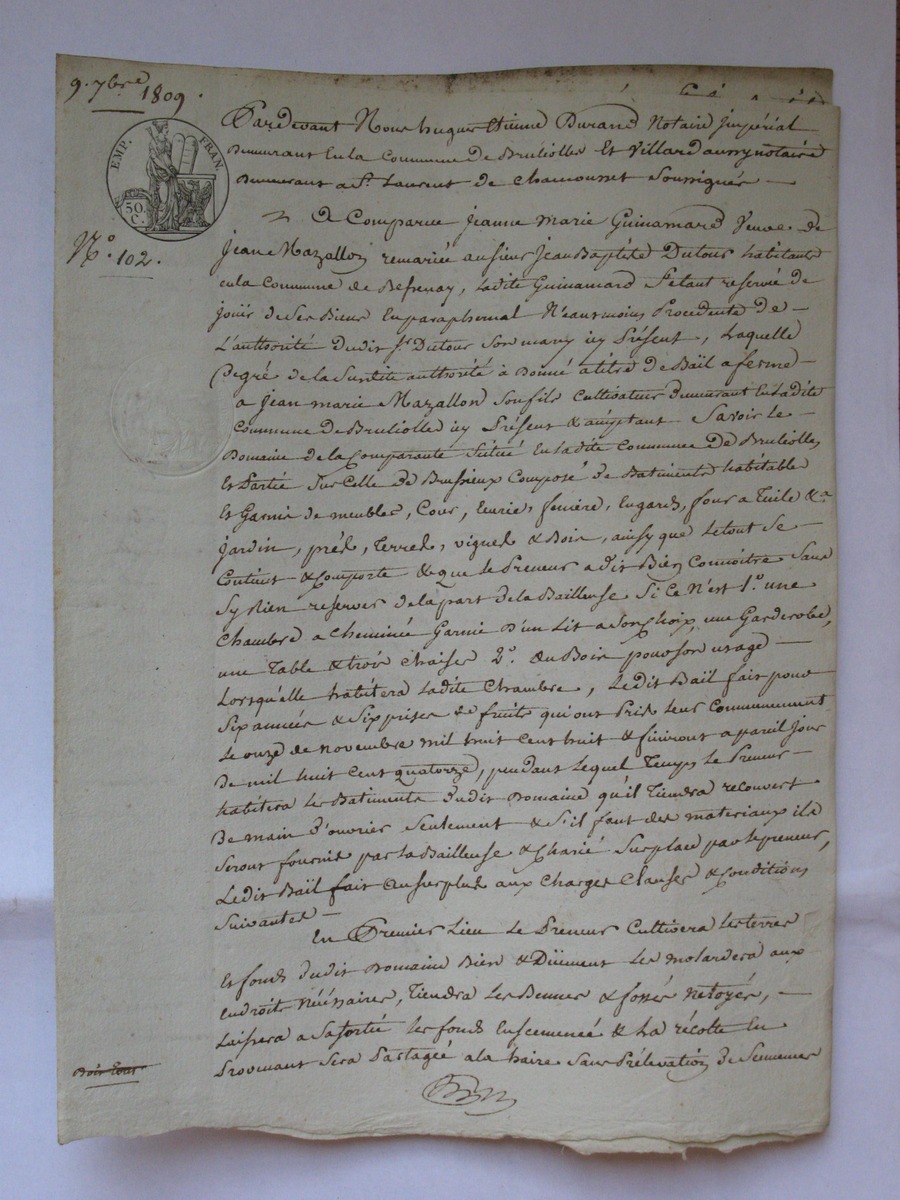 9. 7bre 1809.
EMP. FRAN.
50. C.
N.º 102.
Pardevant Nous hugues Etienne Durand Notaire Jmpérial
Demeurant En la Commune de Bruliolles Et Villard aussy notaire
Demeurant a St. Laurent de Chamousset Soussignés —
A Comparue Jeanne Marie Guinamard Veuve de
Jean Mazallon remariée au sieur Jean Baptiste Dutour habitante
en la Commune de Bessenay, Ladite Guinamard S'etant reservée de
jouir de Ses Biens En paraphernal Néausmoins Procedente de
L'authorité dudit Sr. Dutour Son mary icy Présent, Laquelle
De gré de la Susdite authorité à Donné à titre de Bail a ferme
a Jean marie Mazallon Son fils Cultivateur Demeurant En Ladite
Commune de Bruliolle icy Présent & acceptant Savoir Le
Domaine de la Comparante Situé En Ladite Commune De Brulioles
Et Partie Sur Celle de Bussieux Composé de Batiments habitable
Et Garnie de meubles, Cour, Ecurie, feniere, Engards, four a Tuile &a
Jardin, préd, Terres, vignes & Bois, ainsy que le tout Se
Contient & Comporte & que Le Preneur a dit Bien Connoitre Sans
Sy Rien reserver de la part de la Bailleuse Si Ce N'est 1.º une
Chambre a Cheminée Garnie D'un Lit a Son Choix, une Garderobe,
une Table & trois Chaises 2.º du Bois pour Son usage —
Lorsqu'elle habitera Ladite Chambre, Ledit Bail fait pour
Six années & Six prises de fruits qui ont Pris leur Commencement
Le onze de novembre mil huit Cent huit & finiront a pareil jour
De mil huit Cent quatorze, pendant Lequel Temps Le Preneur —
habitera Les Batiments dudit Domaine qu'il Tiendra recouvert
De main D'ouvrier Seulement & S'il faut des materiaux ils
Seront fournis par La Bailleuse & Charié Sur place par Le preneur,
Ledit Bail fait au Surplus aux Charges Clauses & Conditions
Suivantes —
En Premier Lieu Le Preneur Cultivera Les terres
Et fonds dudit Domaine Bien & Düement Les molardera aux
Endroit Nécéssaires, Tiendra Les Bennes & fossés Netoyés, —
Laissera a Sa Sortie Les fonds Ensemencée & La récolte En
Provenant Sera Partagée a la haire Sans Prélevation de Semences